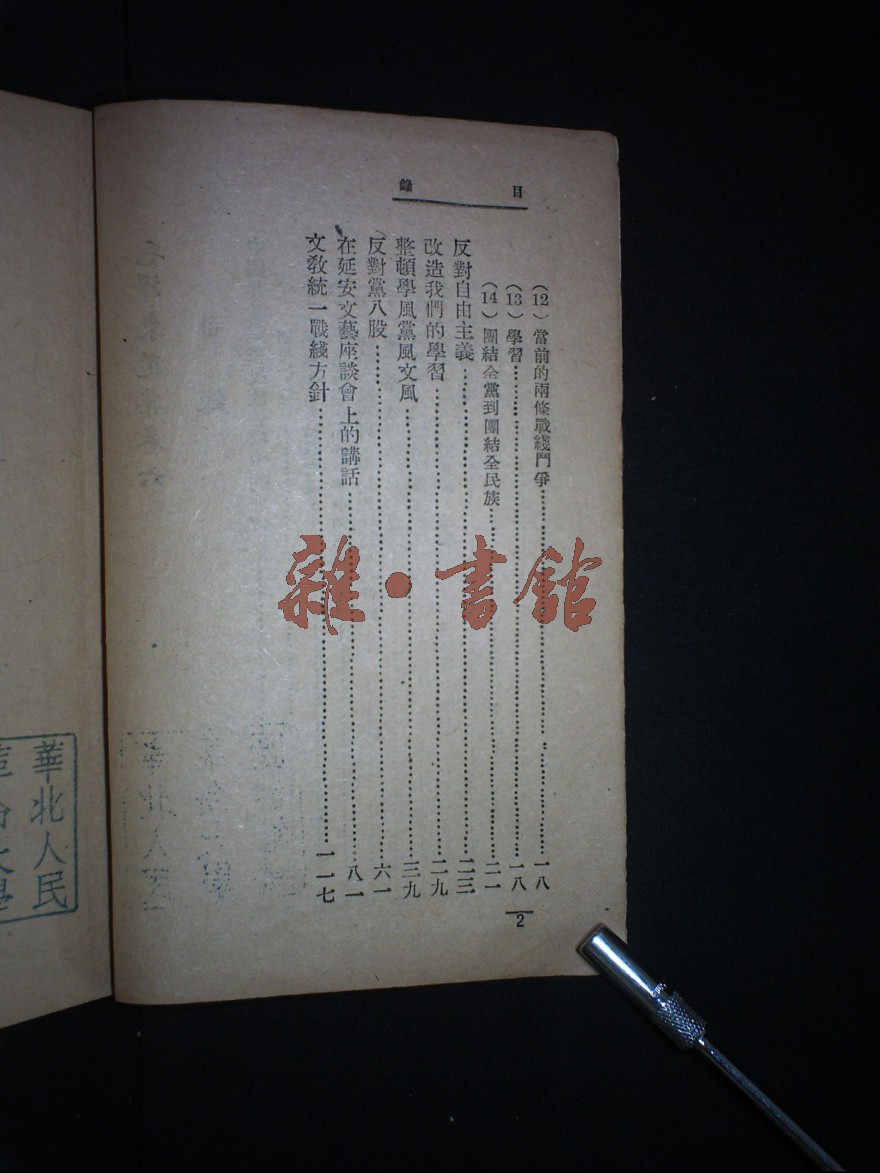 目錄
(12) 當前的兩條戰綫鬥爭 一八
(13) 學習 一八
(14) 團結全黨到團結全民族 二一
反對自由主義 二三
改造我們的學習 二九
整頓學風黨風文風 三九
反對黨八股 六一
在延安文藝座談會上的講話 八一
文敎統一戰綫方針 一一七
2
雜·書館
華北人民